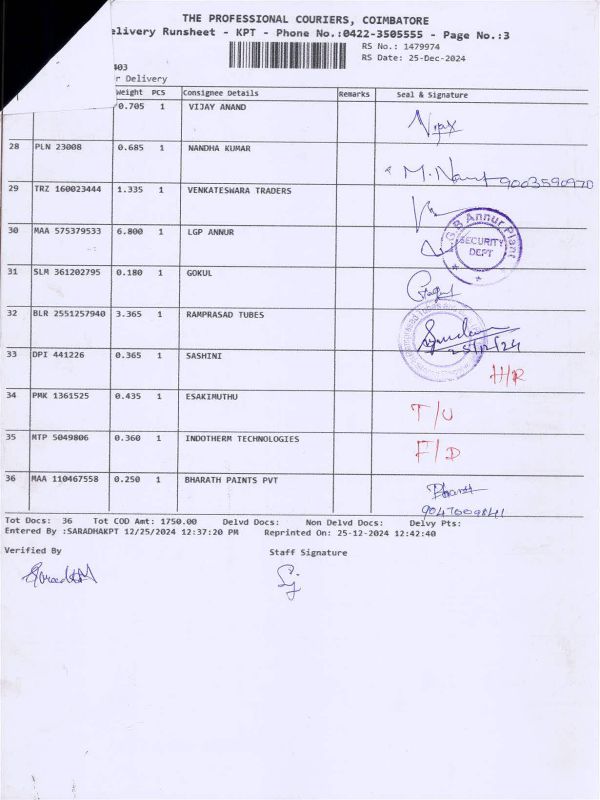 THE PROFESSIONAL COURIERS, COIMBATORE
elivery Runsheet - KPT - Phone No.:0422-3505555 - Page No.:3
RS No.: 1479974
RS Date: 25-Dec-2024
403
r Delivery
Weight PCS Consignee Details Remarks Seal & Signature
0.705 1 VIJAY ANAND
28 PLN 23008 0.685 1 NANDHA KUMAR
9003590970
29 TRZ 160023444 1.335 1 VENKATESWARA TRADERS
30 MAA 575379533 6.800 1 LGP ANNUR
Annur Plant
SECURITY
DEPT
31 SLM 361202795 0.180 1 GOKUL
32 BLR 2551257940 3.365 1 RAMPRASAD TUBES
25/12/24
33 DPI 441226 0.365 1 SASHINI
H/R
34 PMK 1361525 0.435 1 ESAKIMUTHU
T/U
35 MTP 5049806 0.360 1 INDOTHERM TECHNOLOGIES
F/D
36 MAA 110467558 0.250 1 BHARATH PAINTS PVT
Tot Docs: 36 Tot COD Amt: 1750.00 Delvd Docs: Non Delvd Docs: Delvy Pts:
Entered By :SARADHAKPT 12/25/2024 12:37:20 PM Reprinted On: 25-12-2024 12:42:40
Verified By Staff Signature